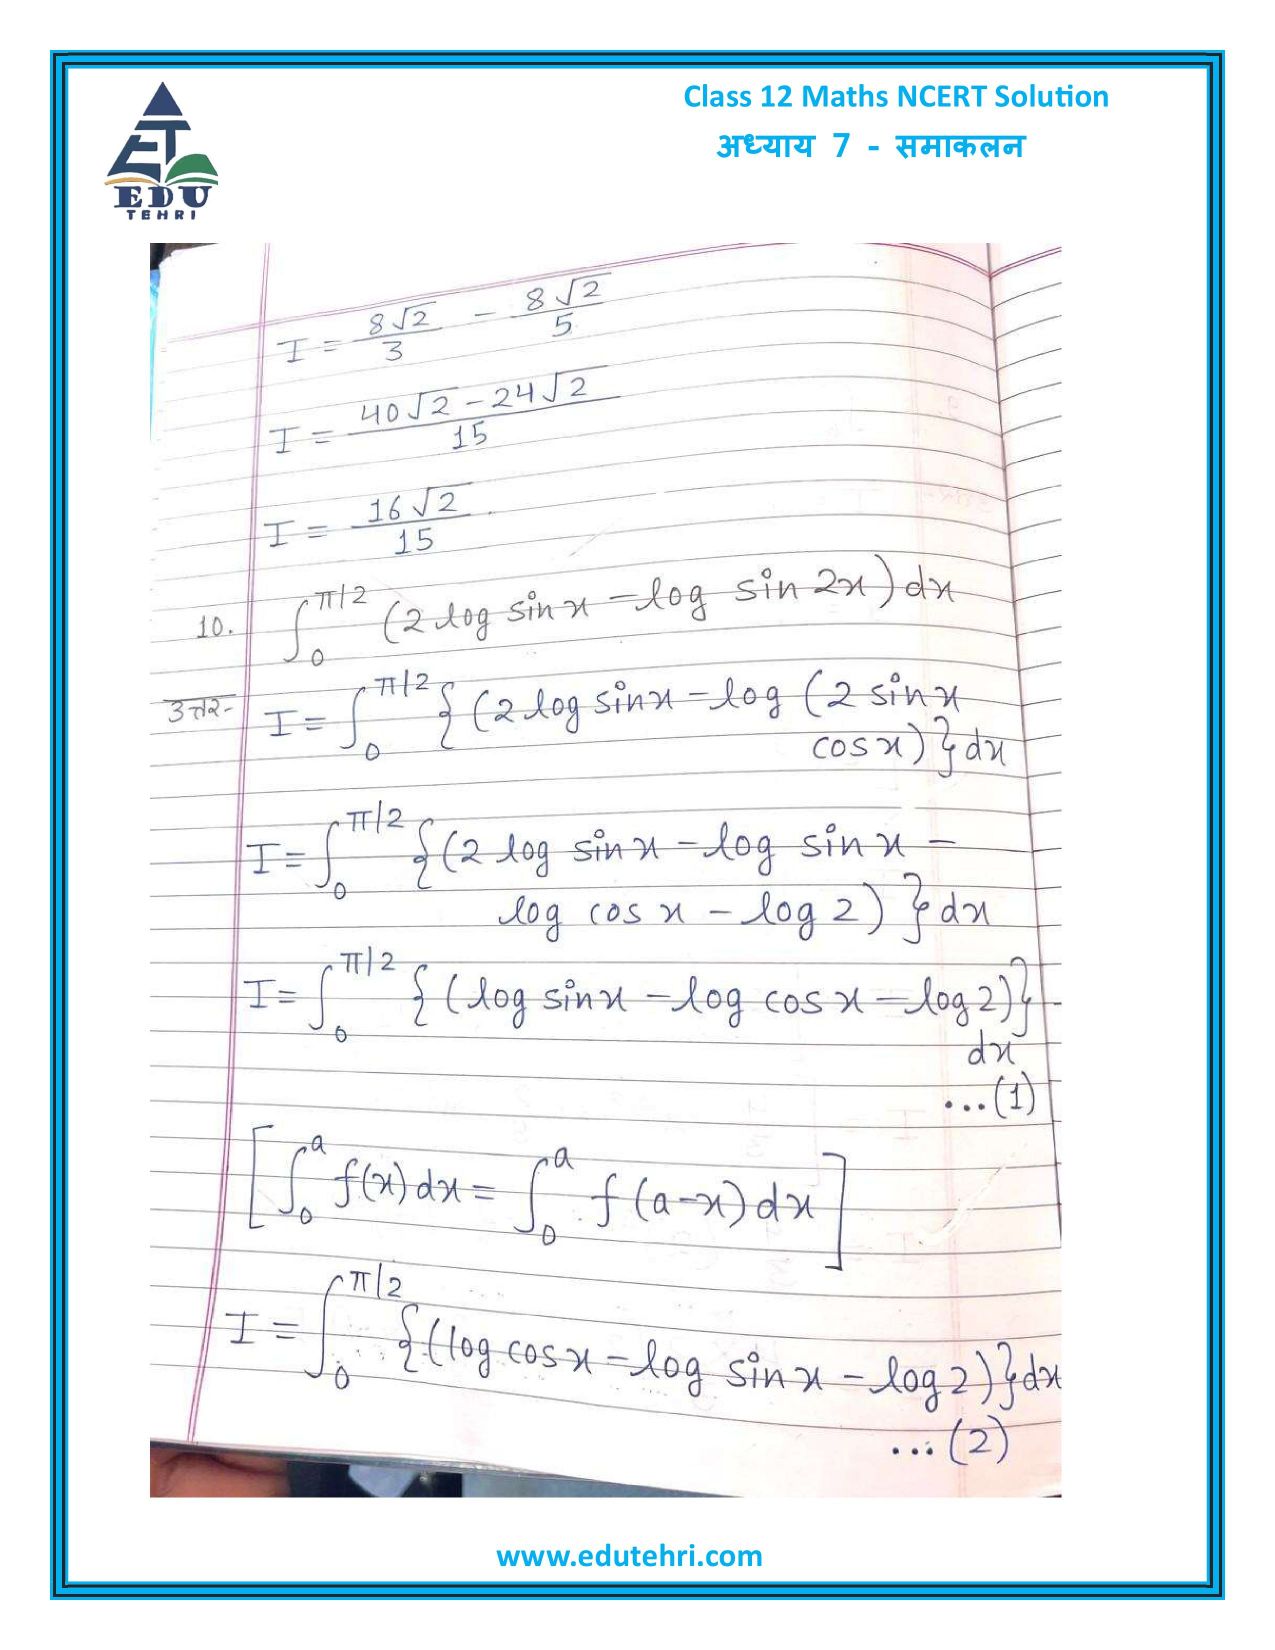 Class 12 Maths NCERT Solution
अध्याय 7 - समाकलन
EDU
TEHRI
I = 8√2/3 - 8√2/5
I = (40√2 - 24√2)/15
I = 16√2/15.
10. ∫₀^(π/2) (2 log sin x - log sin 2x) dx
उत्तर- I = ∫₀^(π/2) {(2 log sin x - log (2 sin x
cos x)} dx
I = ∫₀^(π/2) {(2 log sin x - log sin x -
log cos x - log 2)} dx
I = ∫₀^(π/2) {(log sin x - log cos x - log 2)}
dx
...(1)
[∫₀^a f(x) dx = ∫₀^a f(a-x) dx]
I = ∫₀^(π/2) {(log cos x - log sin x - log 2)} dx
...(2)
www.edutehri.com